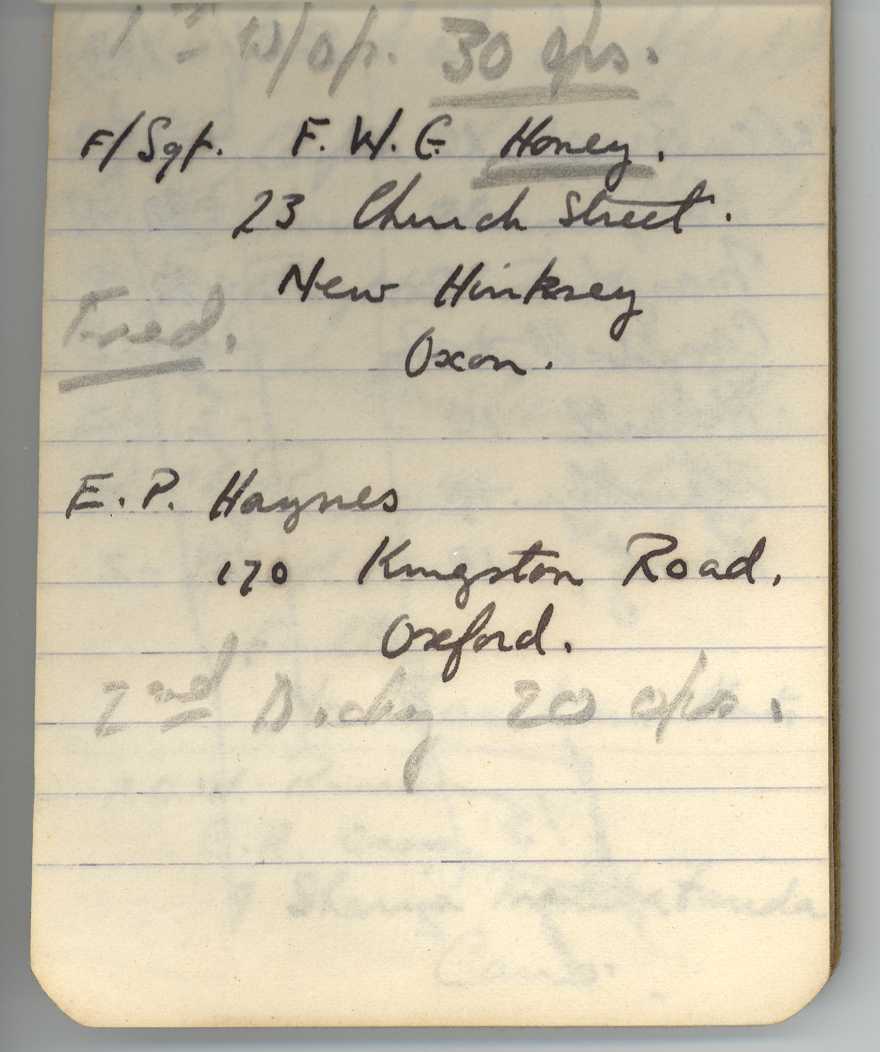 1st W/Op. 30 ops.
F/Sgt. F. W. G Honey.
23 Church Street.
New Hinksey
Fred.
Oxon.
E. P. Haynes
170 Kingston Road,
Oxford.
2nd Dicky 20 ops.